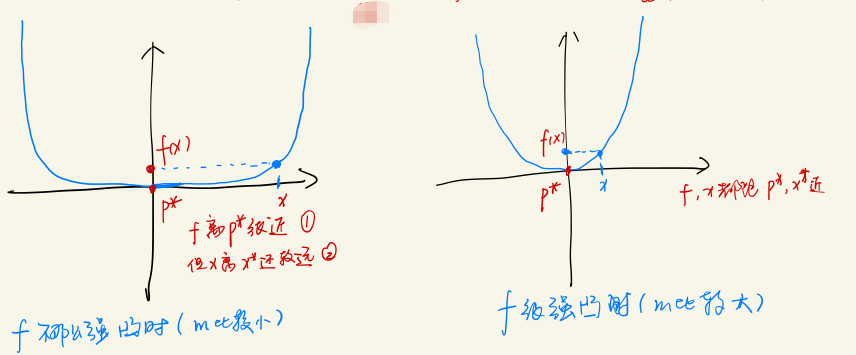 f(x)
p*
x
f 离p*很近 ①
但x离x*还较远 ②
f 不那么强凸时(m比较小)
f(x)
p*
x
f,x都很 p*,x*近
f 很强凸时(m比较大)